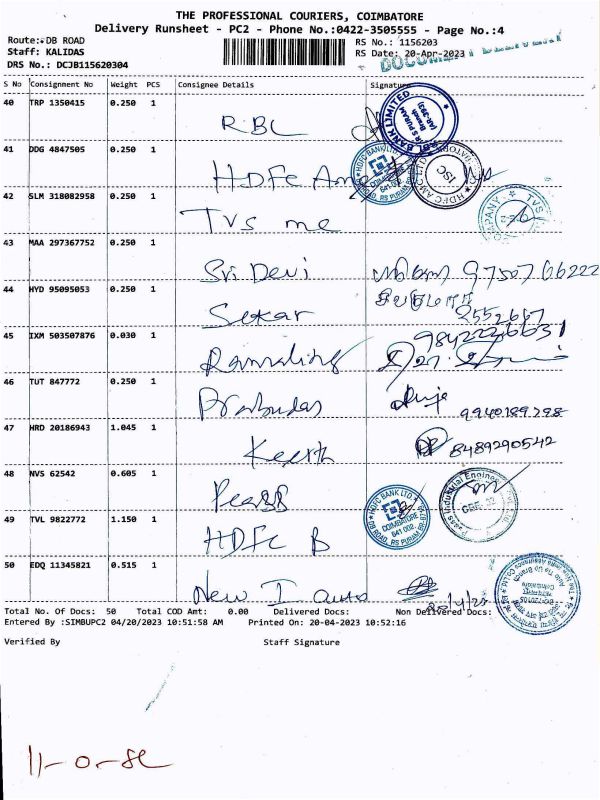 THE PROFESSIONAL COURIERS, COIMBATORE
Delivery Runsheet - PC2 - Phone No.:0422-3505555 - Page No.:4
Route:-DB ROAD
Staff: KALIDAS
DRS No.: DCJB115620304
RS No.: 1156203
RS Date: 20-Apr-2023
DOCUMENT DELIVERY
S No Consignment No Weight PCS Consignee Details Signature
40 TRP 1350415 0.250 1 RBL
41 DDG 4847505 0.250 1 HDFC Amc
42 SLM 318082958 0.250 1 TVS me
43 MAA 297367752 0.250 1 Sri Devi 97507 66222
44 HYD 95095053 0.250 1 Sekar 2552667
9842226651
45 IXM 503507876 0.030 1 Ramaling
46 TUT 847772 0.250 1 Prabudas 9940189798
47 HRD 20186943 1.045 1 Keerth 8489290542
48 NVS 62542 0.605 1
49 TVL 9822772 1.150 1 HDFC B
50 EDQ 11345821 0.515 1 New I auto
Total No. Of Docs: 50 Total COD Amt: 0.00 Delivered Docs: Non Delivered Docs:
Entered By :SIMBUPC2 04/20/2023 10:51:58 AM Printed On: 20-04-2023 10:52:16
Verified By Staff Signature